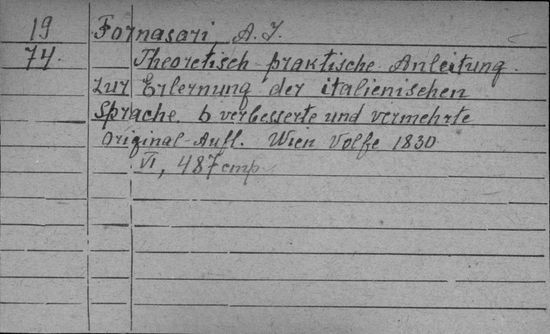 19 Fornasari, A. J.
74. Theoretisch praktische Anleitung
zur Erlernung der italienischen
Sprache. 6 verbesserte und vermehrte
Original-Aufl. Wien Volfe 1830
VI, 487 стр